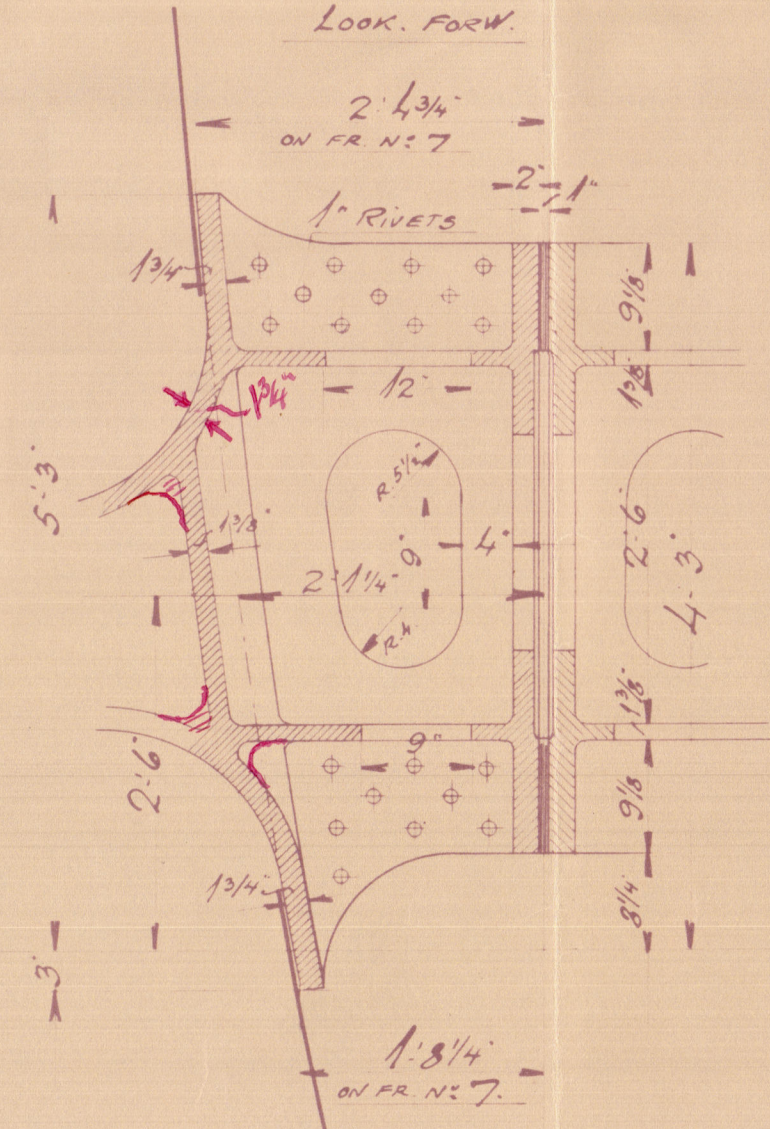 LOOK. FORW.
2'. 4 3/4"
ON FR. Nº 7
2"
1"
1" RIVETS
1 3/4"
9 1/8"
1 3/8"
12"
1 3/4"
5'-3"
R. 5 1/2"
1 3/8"
9"
4"
2'-6"
4-3"
2'-1 1/4"
R. 4
1 3/8"
9"
2'-6"
9 1/8"
1 3/4"
8 1/4"
3"
1'-8 1/4"
ON FR. Nº 7.